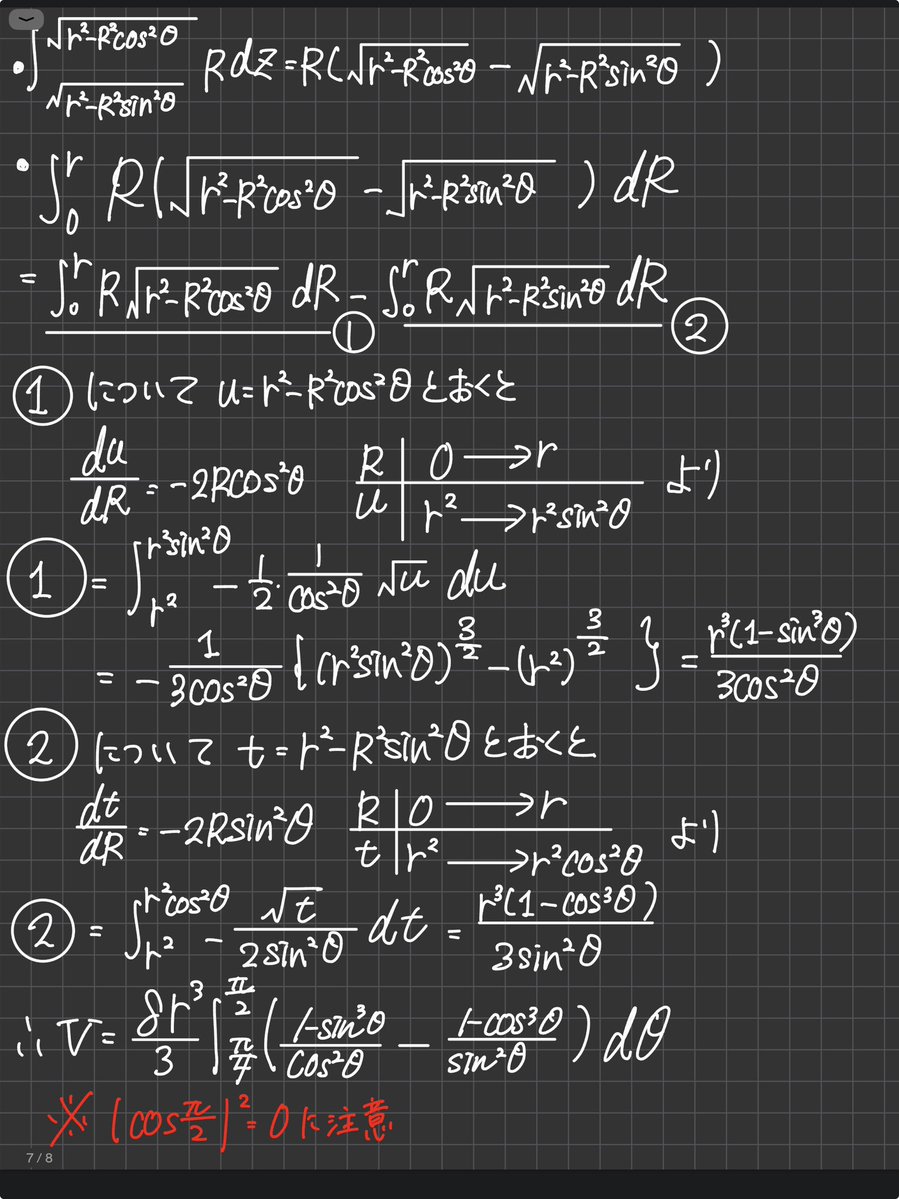 ・∫_{√(r²-R²sin²θ)}^{√(r²-R²cos²θ)} Rdz=R(√(r²-R²cos²θ) - √(r²-R²sin²θ))
・∫_0^r R(√(r²-R²cos²θ) - √(r²-R²sin²θ))dR
= ∫_0^r R√(r²-R²cos²θ) dR - ∫_0^r R√(r²-R²sin²θ) dR
① ②
① について u=r²-R²cos²θ とおくと
du/dR = -2Rcos²θ R | 0 → r より
u | r² → r²sin²θ
① = ∫_{r²}^{r²sin²θ} -1/2・1/cos²θ √u du
= -1/(3cos²θ) {(r²sin²θ)^{3/2} - (r²)^{3/2}} = r³(1-sin³θ)/(3cos²θ)
② について t=r²-R²sin²θ とおくと
dt/dR = -2Rsin²θ R | 0 → r より
t | r² → r²cos²θ
② = ∫_{r²}^{r²cos²θ} -√t/(2sin²θ) dt = r³(1-cos³θ)/(3sin²θ)
∴ V = 8r³/3 ∫_{π/4}^{π/2} ((1-sin³θ)/cos²θ - (1-cos³θ)/sin²θ) dθ
※ (cos π/2)² = 0 に注意
7 / 8